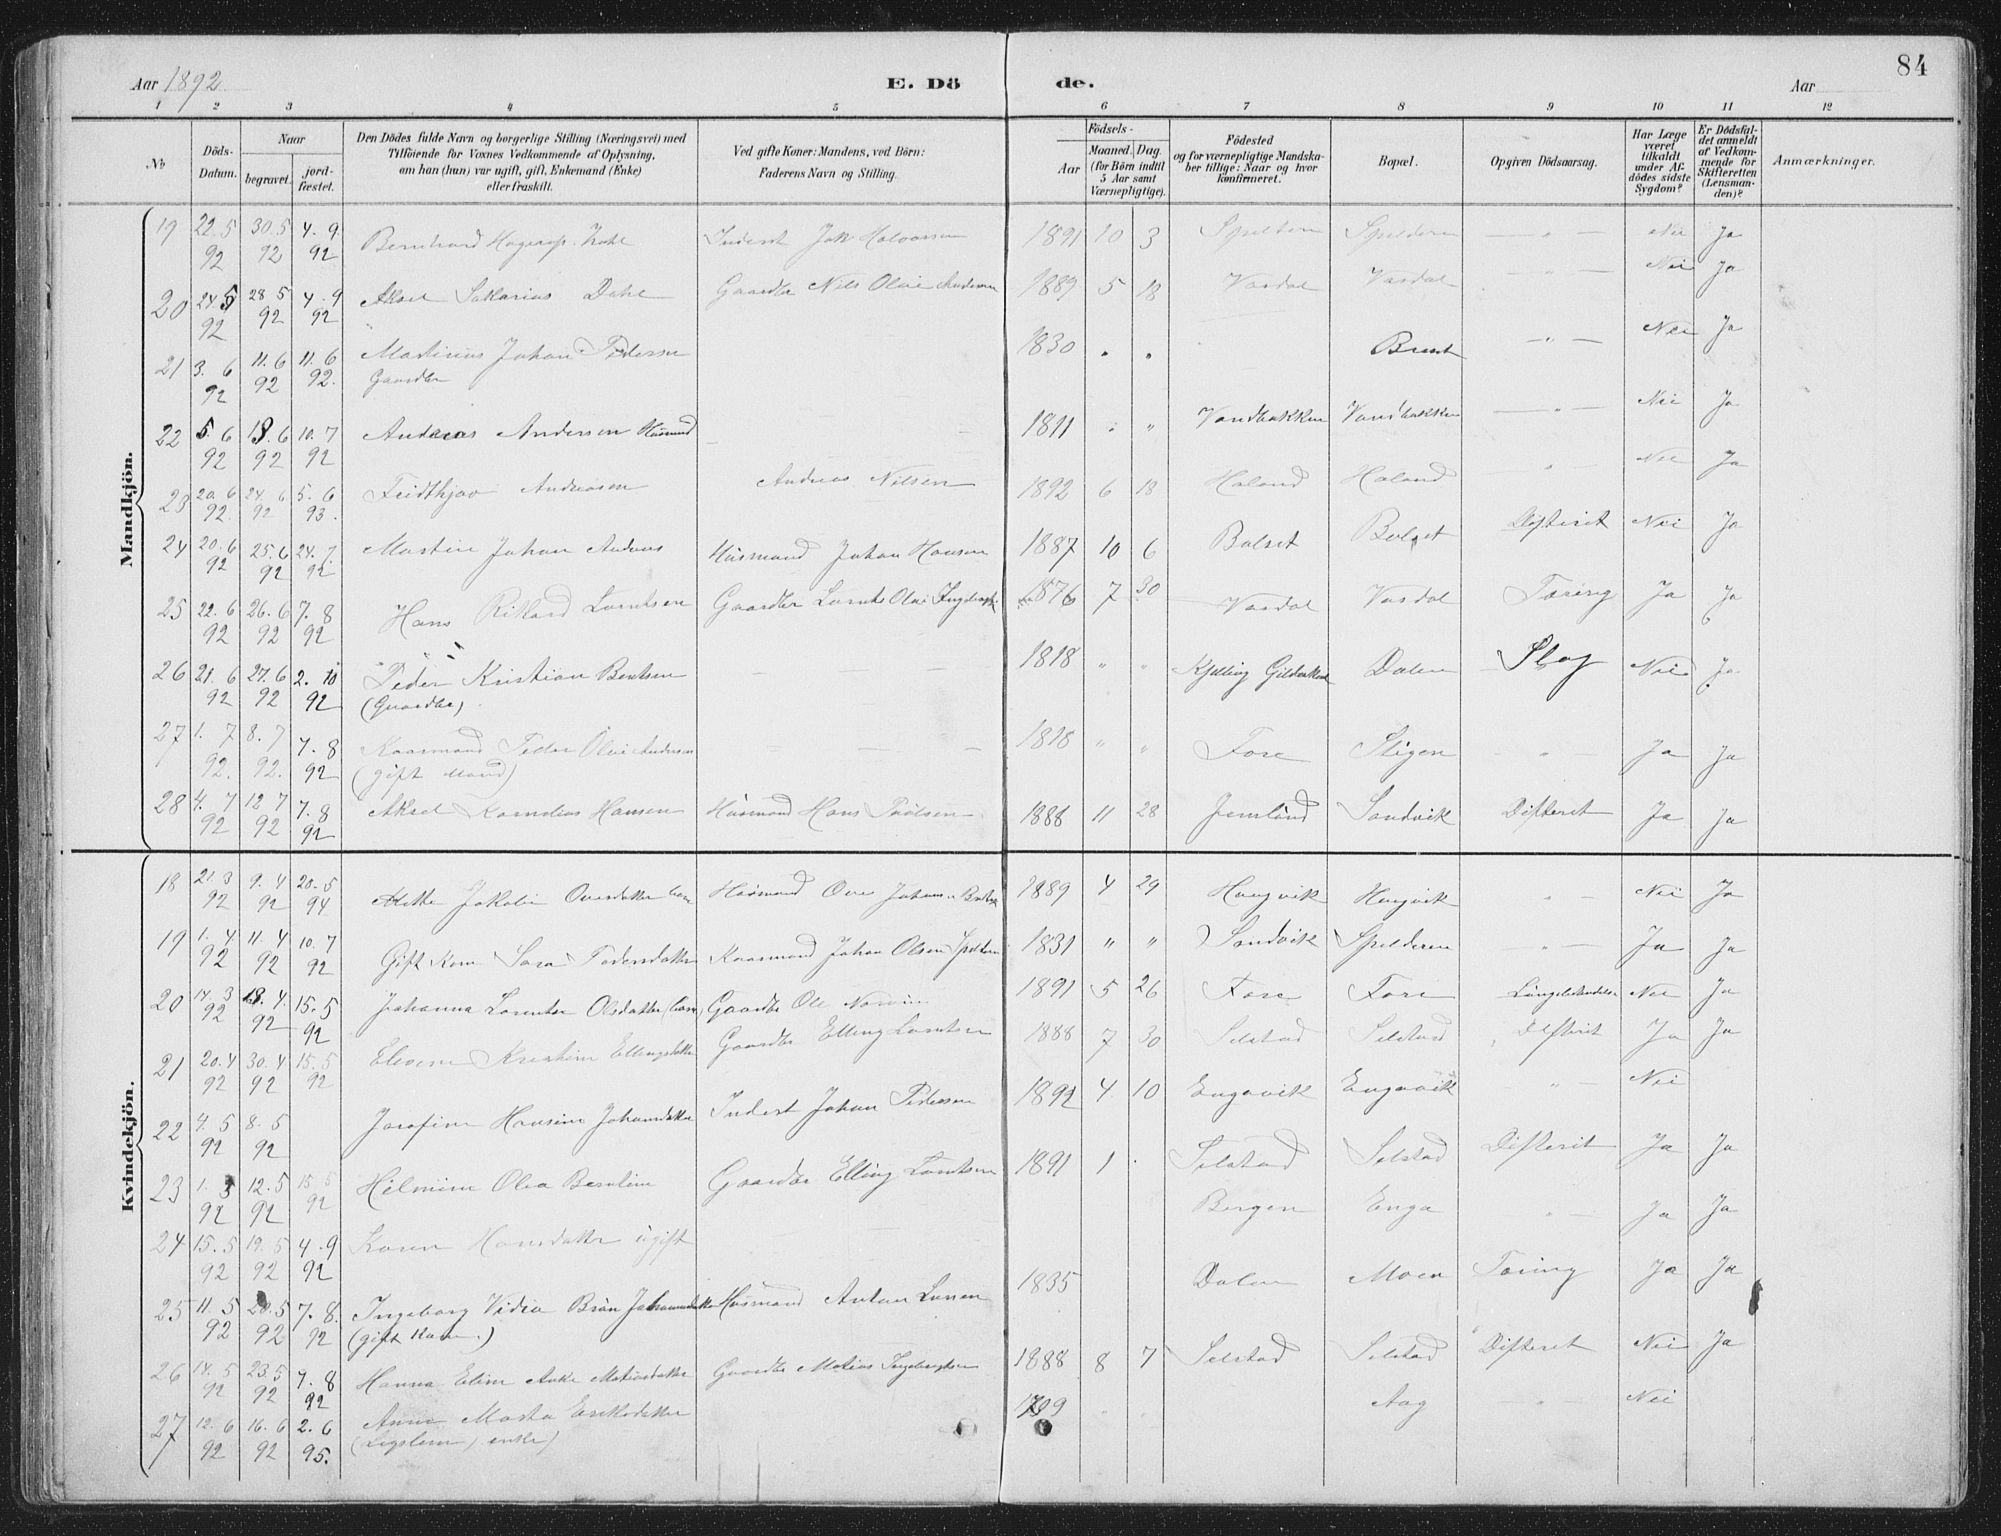 Aar 1892
E. Dö
de.
Aar
84
1 2 3 4 5 6 7 8 9 10 11 12
No
Döds-Datum.
Naar
begravet.
jord-fæstet.
Den Dödes fulde Navn og borgerlige Stilling (Næringsvei) med
Tilföiende for Voxnes Vedkommende af Oplysning,
om han (hun) var ugift, gift, Enkemand (Enke)
eller fraskilt.
Ved gifte Koner: Mandens, ved Börn:
Faderens Navn og Stilling.
Födsels-
Aar
Maaned. Dag.
(for Börn indtil
5 Aar samt
Værnepligtige).
Födested
og for værnepligtige Mandska-
ber tillige: Naar og hvor
konfirmeret.
Bopæl.
Opgiven Dödsaarsag.
Har Læge
været
tilkaldt
under Af-
dödes sidste
Sygdom?
Er Dödsfal-
det anmeldt
af Vedkom-
mende for
Skifteretten
(Lensman-
den)?
Anmærkninger.
Mandkjön.
19 22.5 92 30.5 92 4.9 92 Bernhard Hagerup Inderst Jak Halvorsen 1891 10 3 Spildern Spilderen — " — Nei Ja
20 24.5 92 28.5 92 4.9 92 Aksel Sakarias Dahl Gaardbr Nils Olai Andersen 1889 5 18 Vasdal Vasdal — " — Nei Ja
21 3.6 92 11.6 92 11.6 92. Martinus Johan Pedersen 1830 " " — " — Nei Ja
Gaardbr
22 5.6 92 18.6 92 10.7 92 Andreas Andersen Husmand — 1811 " " Vandbakken Vandbakken — " — Nei Ja
23 20.6 92. 24.6 92 5.6 93. Fridthjov Andreasen Andreas Nilsen 1892 6 18 Haland Haland — " — Nei Ja
24 20.6 92 25.6 92 24.7. 92. Martin Johan Andreas Husmand Johan Hansen 1887 10 6 Balset Balset Difterit Nei Ja
25 22.6 92 26.6 92 7.8 92 Hans Rikard Lorntsen Gaardbr Lornts Olai 1876 7 30 Vasdal Vasdal Tæring Ja Ja
26 21.6 92 27.6 92 2.10 92 Peder Kristian Bentsen — 1818 " " Kjelling Gildeskaal Dalen Slag Nei Ja
(Gaardbr)
27 1.7 92. 8.7 92. 7.8 92 Kaarmand Peder Olai Andersen — — — 1818 " " Fore Stigen — " — Ja Ja
(gift Mand)
28 4.7 92 12 7 92 7.8 92 Aksel Kornelius Hansen Husmand Hans 1888 11 28 Sandvik Difterit Ja Ja
Kvindekjön.
18 21.3 92 9.4 92 20.5 94 Jakobine Ovesdatter Husmand Ove Johan 1889 4 29 Haugvik Haugvik " — Nei Ja
19 1.4 92 11.4 92 10.7 92 Gift Kone Sara Pedersdatter Kaarmand Johan Olsen 1831 " " Sandvik Spilderen " — Ja Ja
20 14.3 92 18.4. 92 15.5 92 Johanna Olsdatter Gaardbr Ole 1891 5 26 Fore Fore Lungebetændelse Nei Ja
21 20.4 92 30.4 92 15.5 92 Kristine Ellingsdatter Gaardbr Elling Lorntsen 1888 7 30 Selstad Selstad Difterit Ja Ja
22 4.5 92 8.5 92 Josefine Hansine Johansdatter Inderst Johan Pedersen 1892 4. 10 Engavik Engavik — " — Nei
23 1.5 92 12.5 92 15.5 92 Hilmine Olea Berntine Gaardbr Elling Lorntsen 1891 1 Selstad Selstad Difterit Ja Ja
24 15.5 92 19.5 92 4.9 92 Karen Hansdatter ugift — Bergen Enga " — Ja Ja
25 11.5 92 20.5 92 7.8. 92 Ingeborg Johannesdatter Husmand Anton Larsen 1835 Dalen Moen Tæring Ja Ja
(gift Kone.)
26 14.5 92 23.5 92 7.8 92 Hanna Eline Matiasdatter Gaardbr Matias Ingebrigtsen 1888 8 7 Selstad Selstad Difterit Nei Ja
27 12.6 92 16.6 92 2.6 95. Anna Marta Eriksdatter Aag — " — Nei
(Legslem, enke)